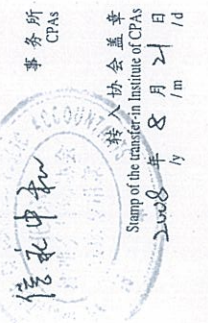 信永中和 事务所
CPAs
转入协会盖章
Stamp of the transfer-in Institute of CPAs
2008年8月21日
/y /m /d